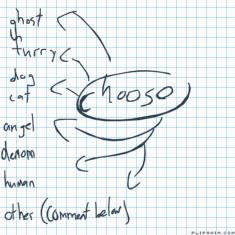 ghost
turry
dog
cat
chooso
angel
denom
human
other (comment below)
FLIPANIM.COM